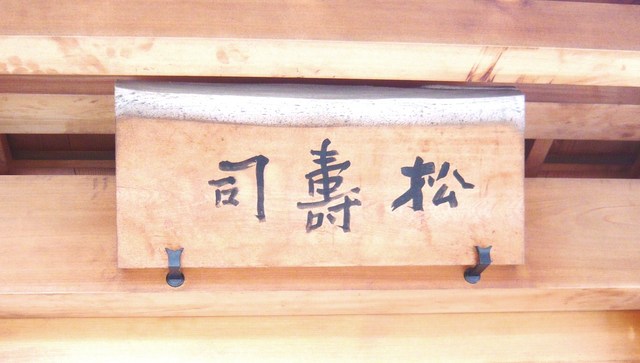 松壽司